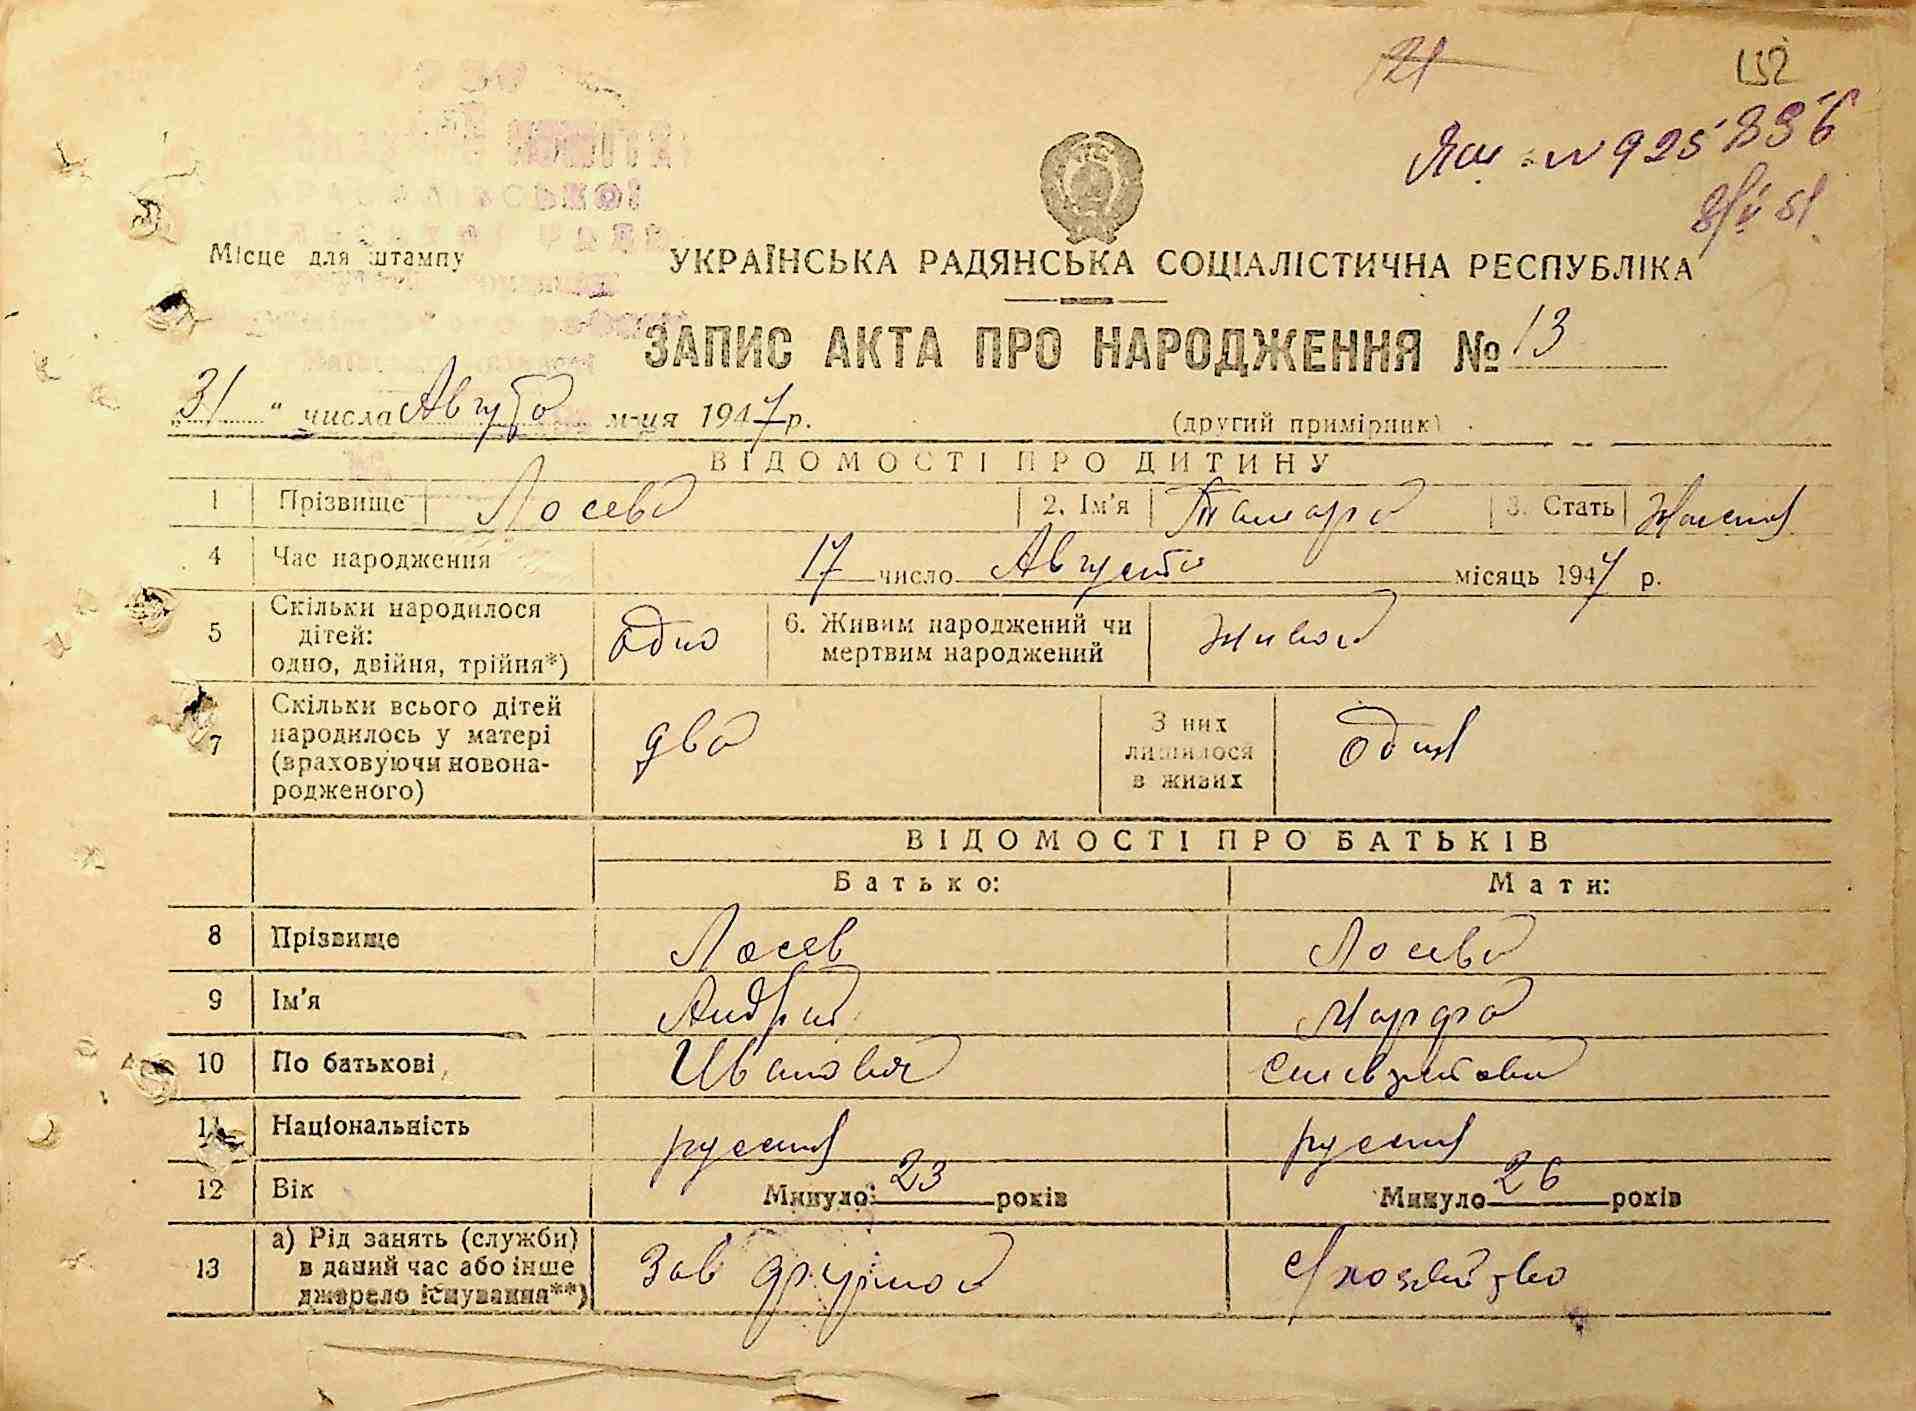 121
132
№ 925836
8/V 51
Місце для штампу
УКРАЇНСЬКА РАДЯНСЬКА СОЦІАЛІСТИЧНА РЕСПУБЛІКА
ЗАПИС АКТА ПРО НАРОДЖЕННЯ № 13
31 " числа Августа м-ця 1947 р.
(другий примірник)
ВІДОМОСТІ ПРО ДИТИНУ
1 Прізвище Лосева 2. Ім'я Тамара 3. Стать Женск
4 Час народження 17 число Августа місяць 1947 р.
5 Скільки народилося дітей: одно, двійня, трійня*) одно 6. Живим народжений чи мертвим народжений живой
7 Скільки всього дітей народилось у матері (враховуючи новона-родженого) два З них лишилося в живих один
ВІДОМОСТІ ПРО БАТЬКІВ
Батько: Мати:
8 Прізвище Лосев Лосева
9 Ім'я Андрей Марфа
10 По батькові Иванович
11 Національність русский русский
12 Вік Минуло 23 років Минуло 26 років
13 а) Рід занять (служби) в даний час або інше джерело існування**) Зав фермой с/хозяйство